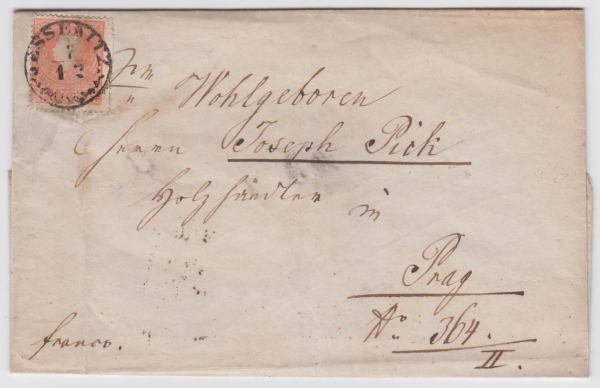 JESSENITZ
7
12
Wohlgeboren
Herrn Joseph Pick
Holzhändler in
Prag
No 364.
II.
franco.